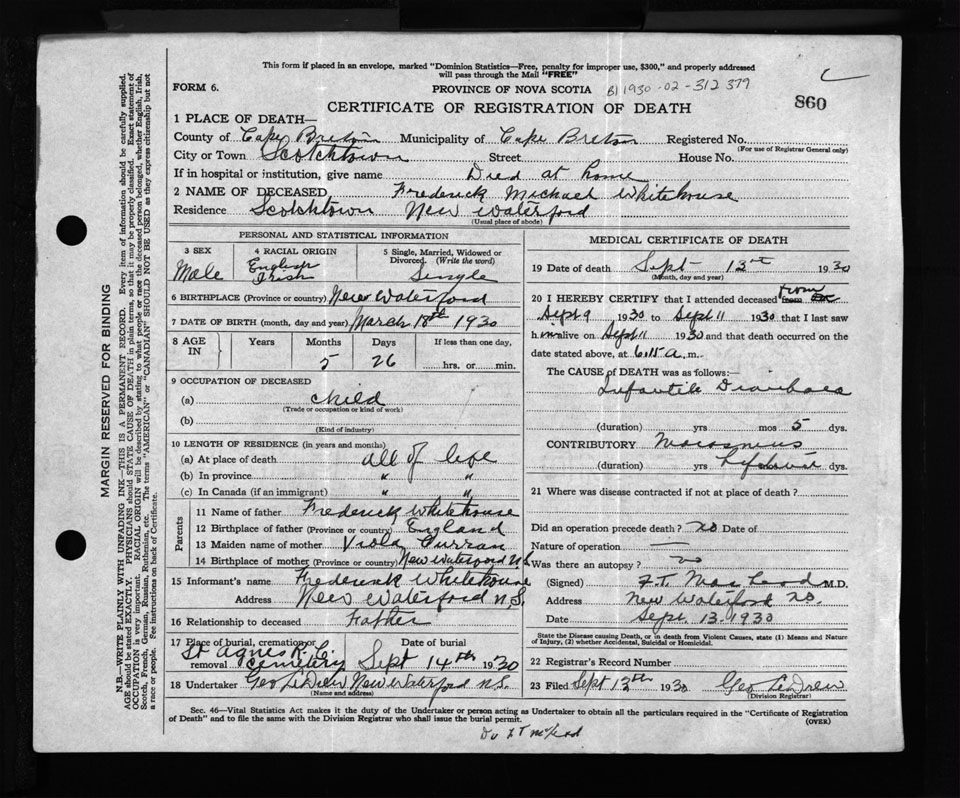 This form if placed in an envelope, marked "Dominion Statistics—Free, penalty for improper use, $300," and properly addressed
will pass through the Mail "FREE"
FORM 6. PROVINCE OF NOVA SCOTIA B1930-02-312379
CERTIFICATE OF REGISTRATION OF DEATH 860
1 PLACE OF DEATH—
County of Cape Breton Municipality of Cape Breton Registered No.
(For use of Registrar General only)
City or Town Scotchtown Street House No.
If in hospital or institution, give name Died at home
2 NAME OF DECEASED Frederick Michael Whitehouse
Residence Scotchtown New Waterford
(Usual place of abode)
PERSONAL AND STATISTICAL INFORMATION
3 SEX Male
4 RACIAL ORIGIN English Irish
5 Single, Married, Widowed or Divorced. (Write the word) Single
6 BIRTHPLACE (Province or country) New Waterford
7 DATE OF BIRTH (month, day and year) March 18th 1930
8 AGE IN Years Months Days If less than one day,
5 26 hrs. or min.
9 OCCUPATION OF DECEASED
(a) child
(Trade or occupation or kind of work)
(b)
(Kind of industry)
10 LENGTH OF RESIDENCE (in years and months)
(a) At place of death all of life
(b) In province " "
(c) In Canada (if an immigrant) " "
Parents
11 Name of father Frederick Whitehouse
12 Birthplace of father (Province or country) England
13 Maiden name of mother Viola Curran
14 Birthplace of mother (Province or country) New Waterford N.S.
15 Informant's name Frederick Whitehouse
Address New Waterford N.S.
16 Relationship to deceased Father
17 Place of burial, cremation or removal St Agnes R.C. Cemetery Date of burial Sept 14th 1930
18 Undertaker Geo LeDrew New Waterford N.S.
(Name and address)
MEDICAL CERTIFICATE OF DEATH
19 Date of death Sept 13th 1930
(Month, day and year)
20 I HEREBY CERTIFY that I attended deceased from
Sept 9 1930 to Sept 11 1930 that I last saw
him alive on Sept 11 1930 and that death occurred on the
date stated above, at 6.15 a.m.
The CAUSE of DEATH was as follows:—
Infantile Diarrhoea
(duration) yrs mos 5 dys.
CONTRIBUTORY Marasmus
(duration) yrs dys.
21 Where was disease contracted if not at place of death?
Did an operation precede death? no Date of
Nature of operation —
Was there an autopsy? no
(Signed) M.D.
Address New Waterford N.S.
Date Sept. 13. 1930
State the Disease causing Death, or in death from Violent Causes, state (1) Means and Nature
of Injury, (2) whether Accidental, Suicidal or Homicidal.
22 Registrar's Record Number
23 Filed Sept 13th 1930 Geo LeDrew
(Division Registrar)
Sec. 46—Vital Statistics Act makes it the duty of the Undertaker or person acting as Undertaker to obtain all the particulars required in the "Certificate of Registration
of Death" and to file the same with the Division Registrar who shall issue the burial permit. (OVER)
MARGIN RESERVED FOR BINDING
N.B.—WRITE PLAINLY WITH UNFADING INK—THIS IS A PERMANENT RECORD. Every item of information should be carefully supplied.
AGE should be stated EXACTLY. PHYSICIANS should STATE CAUSE OF DEATH in plain terms, so that it may be properly classified. Exact statement of
OCCUPATION is very important. RACIAL ORIGIN will be described by stating to what people or race the deceased person belonged, whether English, Irish,
Scotch, French, German, Russian, Ruthenian, etc. The terms "AMERICAN" or "CANADIAN" SHOULD NOT BE USED as they express citizenship but not
a race or people. Fee instructions on back of Certificate.